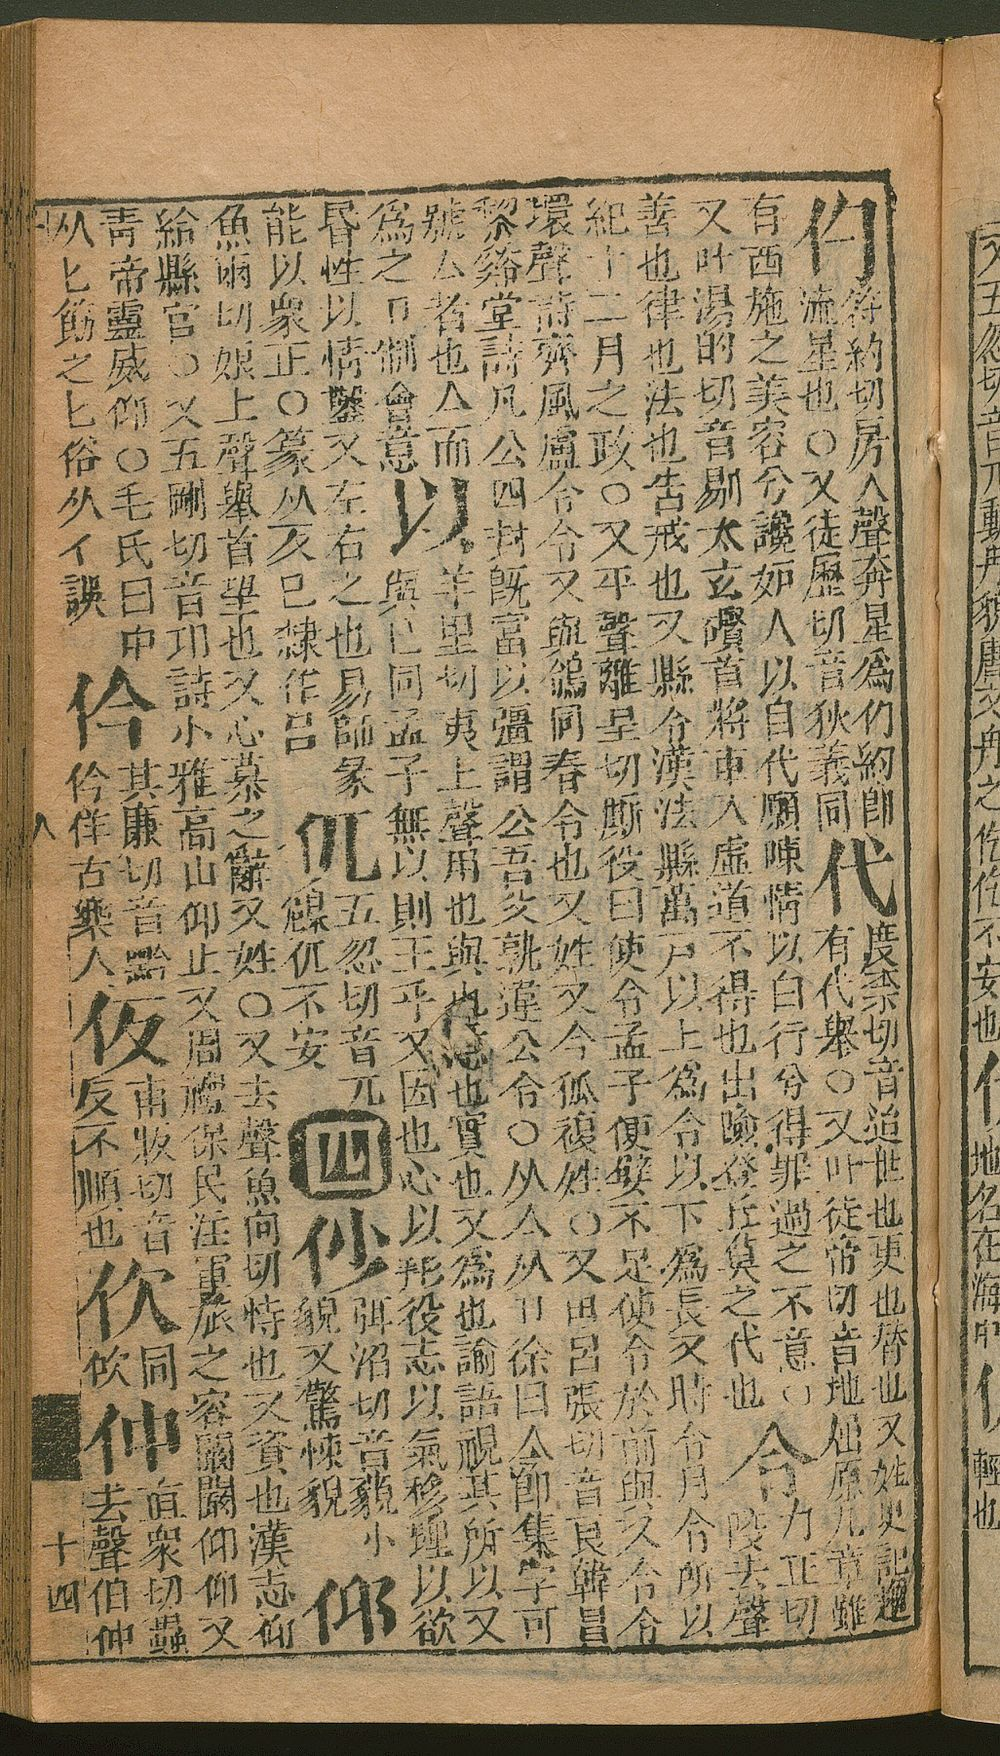 仢符約切房入聲奔星為仢約卽流星也○又徒歷切音狄義同代度柰切音迨世也更也替也又姓史記趙有代舉○又叶徒帝切音地屈原九章雖
有西施之美容兮讒妒入以自代願陳情以白行兮得罪過之不意○又叶湯的切音剔太玄礥首將車入虛道不得也出險登丘莫之代也令力正切陵去聲
善也律也法也告戒也又縣令漢法縣萬戶以上為令以下為長又時令月令所以紀十二月之政○又平聲離呈切厮役曰使令孟子便嬖不足使令於前與又令令
環聲詩齊風盧令令又與鴒同春令也又姓又令狐複姓○又田呂張切音良韓昌黎谿堂詩凡公四封旣富以彊謂公吾父孰違公令○从亼从卩徐曰亼卽集字可
號亼者也亼而為之卩制會意以羊里切夷上聲用也與也實也又為也諭語視其所以又與已同孟子無以則王乎又因也心以形役志以氣移理以欲
昬性以情鑿又左右之也易師彖能以衆正○篆从反巳隸作㠯㐳五忽切音兀臲㐳不安四仯弭沼切音藐小貌又驚悚貌仰
魚兩切娘上聲舉首望也又心慕之辭又姓○又去聲魚向切恃也又資也漢志仰給縣官○又五剛切音卬詩小雅高山仰止又周禮保民注軍旅之容闞闞仰仰又
靑帝靈威仰○毛氏曰中从匕筯之匕俗从亻誤仱其廉切音黔仱佯古樂人仮甫版切音反不順也同仲直衆切蟲去聲伯仲
十四